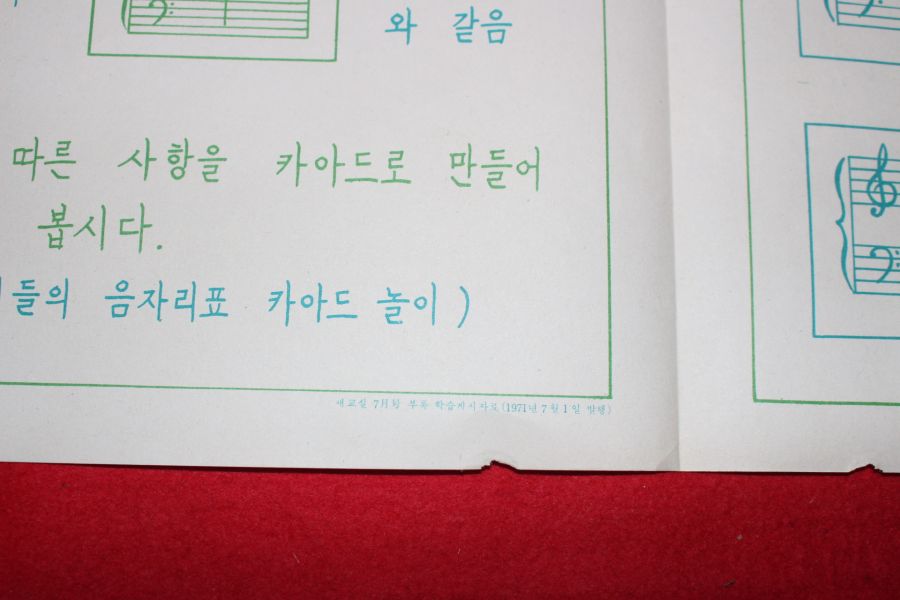 와 같음
따른 사항을 카아드로 만들어
봅시다.
들의 음자리표 카아드 놀이)
새교실 7月号 부록 학습제시자료 (1971년 7월 1일 발행)